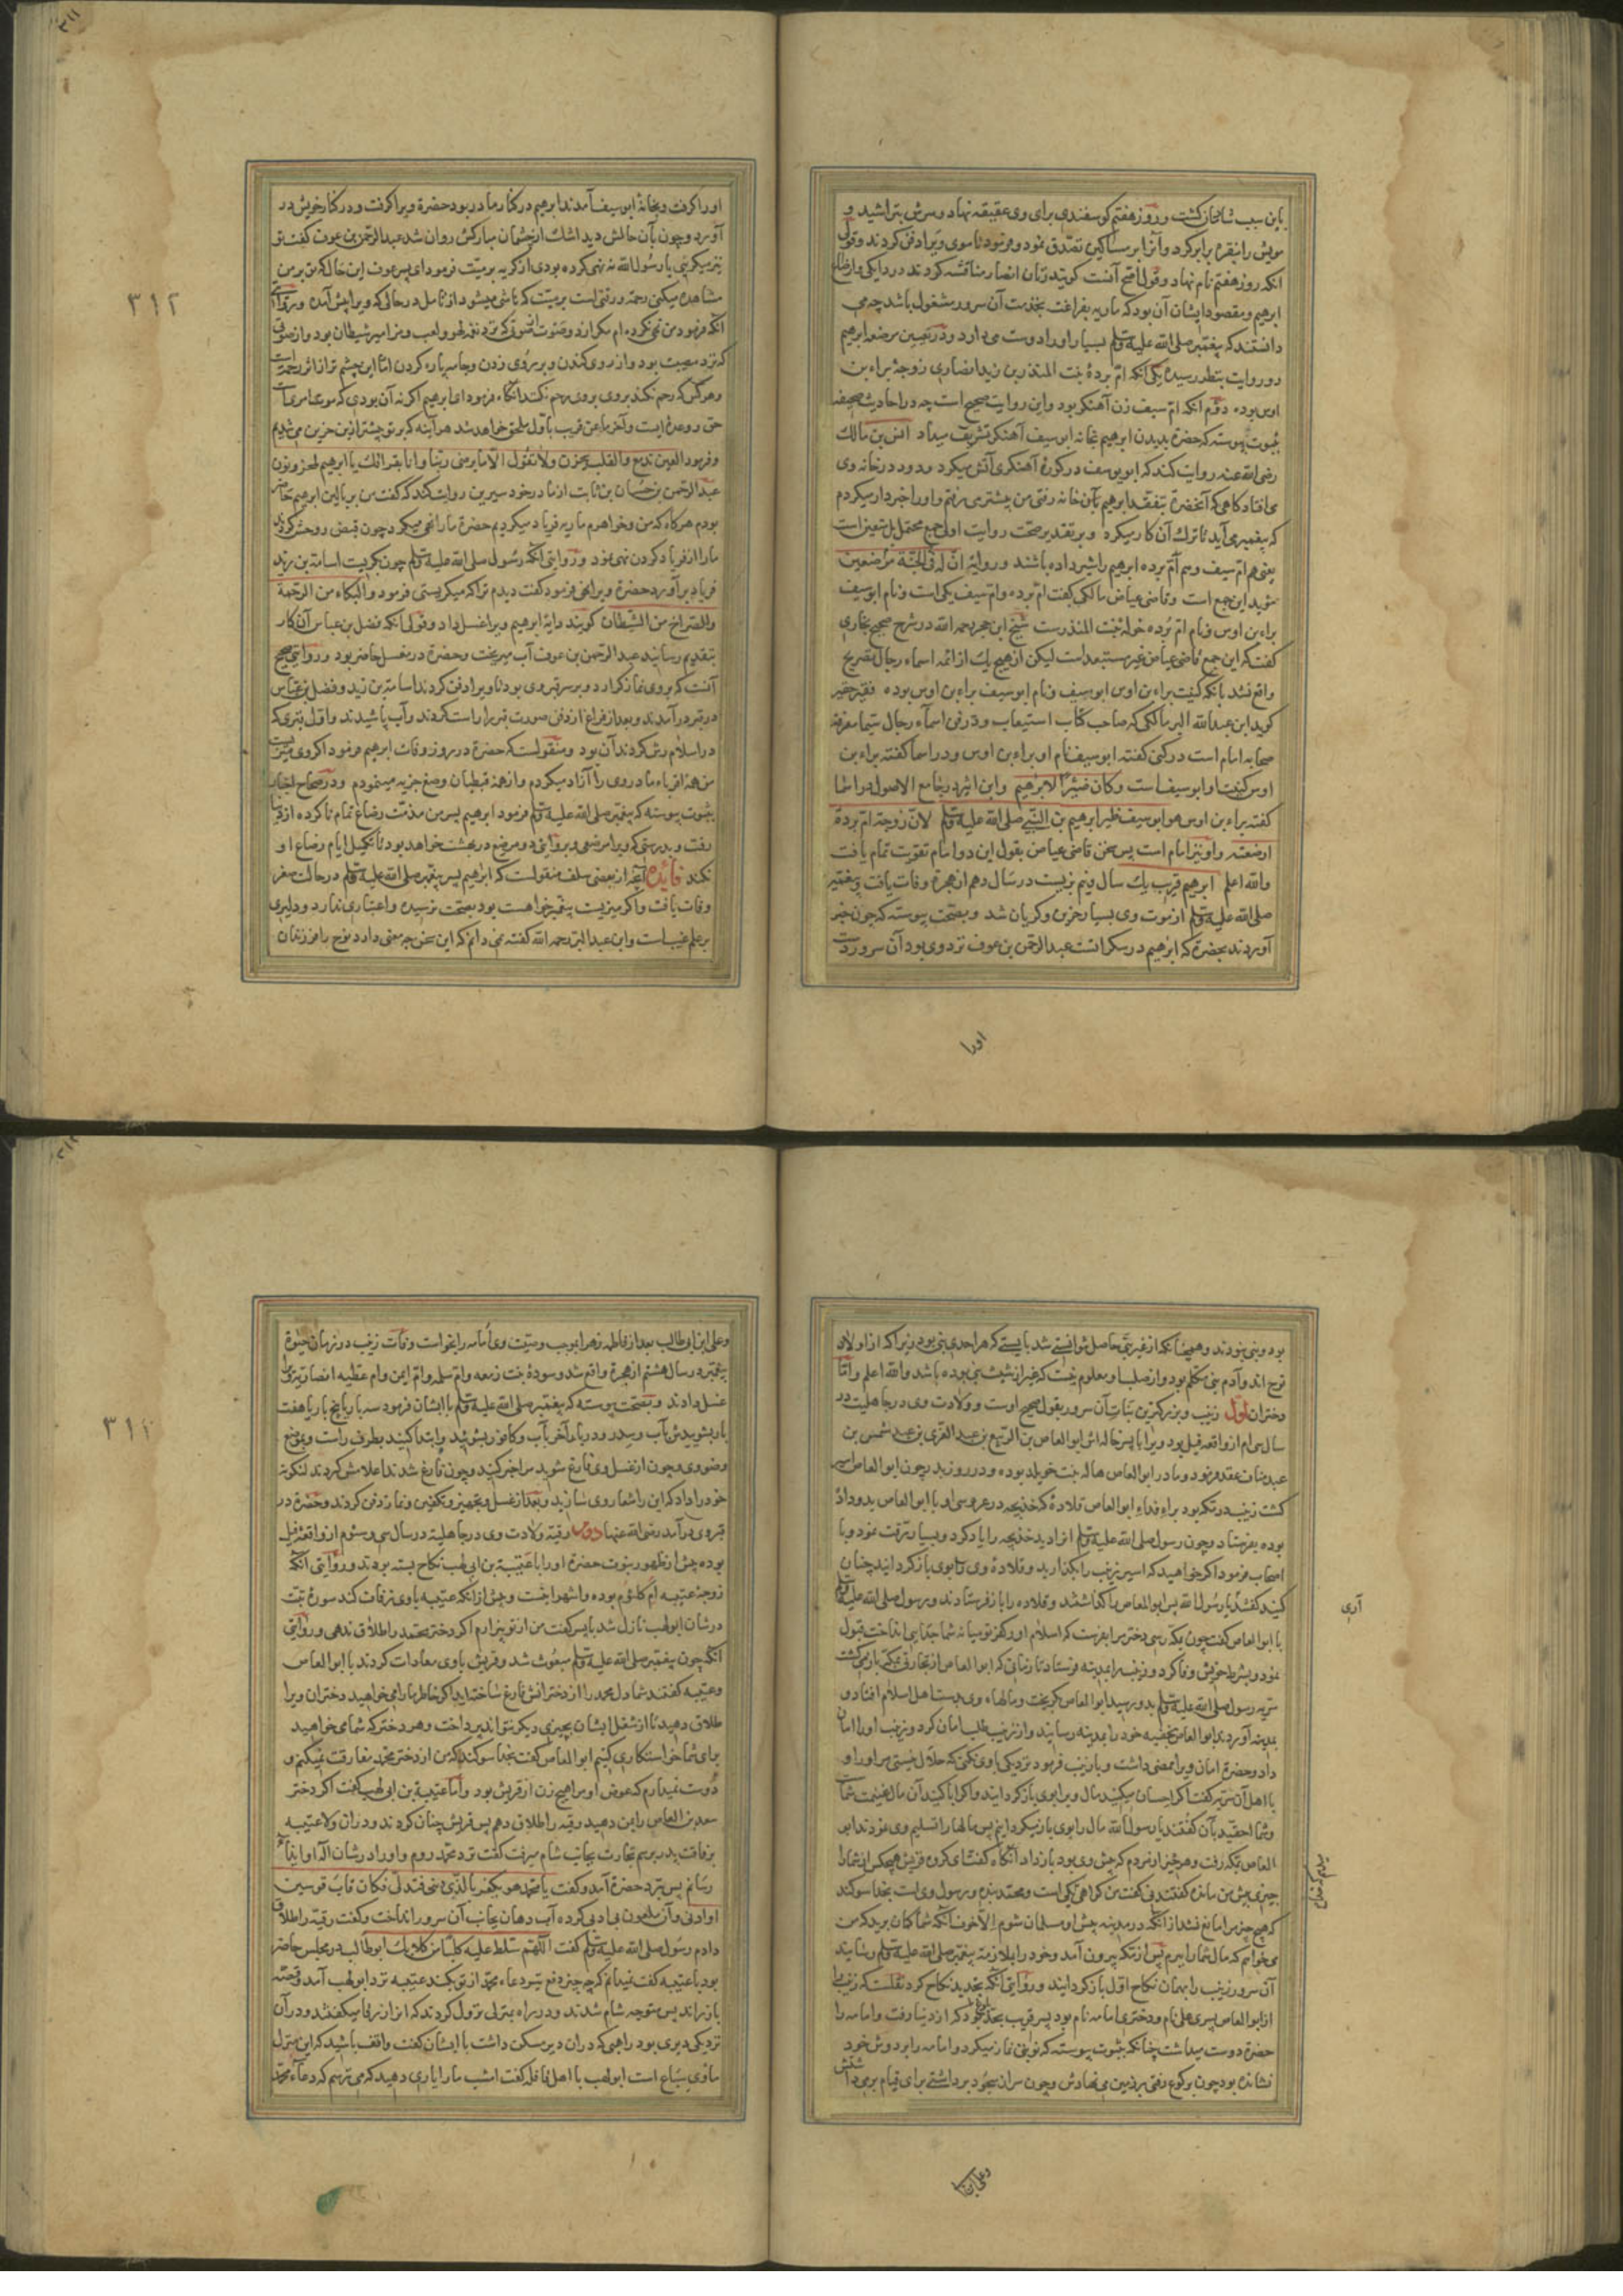 باین سبب شادمان گشت و روز هفتم گوسفندی برای وی عقیقه نهاد و سرش بتراشید و
مویش را بنقره برابر کرد و آنرا بر مساکین تصدق نمود و فرمود تا موی ویرا دفن کردند و قولی
آنکه روز هفتم نام نهاد و قول اصح آنست گویند زنان انصار مناقشه کردند در دایگی و ارضاع
ابرهیم و مقصود ایشان آن بود که ماریه بفراغت بخدمت آن سرور مشغول باشد چه می
دانستند که پیغمبر صلی الله علیه وسلم بسیار او را دوست می دارد و در تعیین مرضعه ابرهیم
دو روایت بنظر رسیده یکی آنکه ام برده بنت المنذر بن زید انصاری زوجه براء بن
اوس بوده دوم آنکه ام سیف زن آهنگر بود و این روایت صحیح است چه در احادیث صحیحه
بثبوت پیوسته که حضرة بدیدن ابرهیم بخانه ابو سیف آهنگر تشریف میداد انس بن مالک
رضی الله عنه روایت کند که ابو یوسف در کوره آهنگری آتش میکرد و دود در خانه وی
می افتاد گاهی که آنحضرة بتفقد ابرهیم بآن خانه رفتی من پیشتر می رفتم و او را خبردار میکردم
که پیغمبر می آید تا ترک آن کار میکرد و بر تقدیر صحت روایت اولی جمع محتمل بل متعین است
یعنی هم ام سیف و هم ام برده ابرهیم را شیر داده باشند و روایة ان له فی الجنة مرضعین
مؤید این جمع است و قاضی عیاض مالکی گفت ام برده و ام سیف یکی است و نام ابو سیف
براء بن اوس و نام ام برده خوله بنت المنذرست شیخ ابن حجر رحمه الله در شرح صحیح بخاری
گفت که این جمع قاضی عیاض غیر مستبعد است لیکن از هیچ یک از ائمه اسماء رجال تصریح
واقع نشد بآنکه کنیت براء بن اوس ابو سیف و نام ابو سیف براء بن اوس بوده فقیر حقیر
گوید ابن عبدالله البر مالکی که صاحب کتاب استیعاب و در فن اسماء رجال سیما معرفة
صحابه امام است در کنی گفته ابو سیف نام او براء بن اوس و در اسما گفته براء بن
اوس کنیت او ابو سیف است وکان ظئیرا لابرهیم و ابن اثیر در جامع الاصول در اسما
گفته براء بن اوس هو ابو سیف ظیر ابرهیم بن النبی صلی الله علیه وسلم لان زوجته ام بردة
ارضعته و او نیز امام است پس سخن قاضی عیاض بقول این دو امام تقویت تمام یافت
والله اعلم ابرهیم قریب یک سال و نیم بزیست در سال دهم از هجرة وفات یافت و پیغمبر
صلی الله علیه وسلم از موت وی بسیار حزین و گریان شد و بصحت پیوسته که چون خبر
آوردند بحضرة که ابرهیم در سکراتست عبد الرحمن بن عوف نزد وی بود آن سرور دست
اورا
۳۱۲
او را گرفت و بخانه ابو سیف آمدند ابرهیم در کنار مادر بود حضرة ویرا گرفت و در کنار خویش در
آورد و چون بآن حالش دید اشک از چشمان مبارکش روان شد عبد الرحمن بن عوف گفت تو
نیز میگریی یا رسول الله نه نهی کرده بودی از گریه بر میت فرمود ای پسر عوف این حال که تو بر من
مشاهده میکنی رحمة و رقتی است بر میت که ناشی میشود از تامل در حالی که ویرا پیش آمده و بروایتی
آنکه فرمود من نهی نکرده ام مگر از دو صوت
که نزد مصیبت بود و از روی کندن و بر روی زدن و جامه پاره کردن اما این چشم تر از اثر رحمت است
و هر کس که رحم نکند بروی رحم نکند آنگاه فرمود ای ابرهیم اگر نه آن بودی که موت امری است
حق و وعده ایست و آخر ما عن قریب باول ملحق خواهد شد هر آینه که بر تو بیشتر ازین حزین می شدیم
و فرمود العین تدمع والقلب یحزن ولا نقول الا ما یرضی ربنا وانا بفراقک یا ابرهیم لمحزونون
عبد الرحمن بن حسان بن ثابت از مادر خود سیرین روایت کند که گفت من بر بالین ابرهیم حاضر
بودم هرگاه که من و خواهرم ماریه فریاد میکردیم حضرة ما را نهی میکرد چون قبض روحش کردند
ما را از فریاد کردن نهی نمود و روایتی آنکه رسول صلی الله علیه وسلم چون بگریست اسامة بن زید
فریاد برآورد حضرة ویرا نهی فرمود گفت دیدم ترا که میگریستی فرمود والبکاء من الرحمة
والصراخ من الشیطان گویند دایه ابرهیم ویرا غسل داد و قولی آنکه فضل بن عباس آن کار
بتقدیم رسانید عبد الرحمن بن عوف آب میریخت و حضرة در غسل حاضر بود و روایتی صحیح
آنست که بروی نماز گزارد و بر سر قبر وی بود تا ویرا دفن کردند اسامة بن زید و فضل بن عباس
در قبر در آمدند و بعد از فراغ از دفن صورت قبر را راست کردند و آب پاشیدند و اول قبری که
در اسلام رش کردند آن بود و منقولست که حضرة در روز وفات ابرهیم فرمود اگر وی میزیست
من همه اقرباء مادر وی را آزاد میکردم و از همه قبطیان وضع جزیه مینمودم و در صحاح اخبار
بثبوت پیوسته که پیغمبر صلی الله علیه وسلم فرمود ابرهیم پسر من مدت رضاع تمام ناکرده از دنیا
رفت و بدرستی که ویرا مرضعی و بروایتی دو مرضع در بهشت خواهد بود تا تکمیل ایام رضاع او
نکند فائده آنچه از بعضی سلف منقولست که ابرهیم پسر پیغمبر صلی الله علیه وسلم در حالت صغر
وفات یافت و اگر میزیست پیغمبر خواست بود بصحت نرسیده و اعتباری ندارد و دلیری
بر علم غیب است و ابن عبد البر رحمه الله گفته نمی دانم که این سخن چه معنی دارد نوح را فرزندان
بود و نبی نبودند و همچنانکه از غیر نبی حاصل توانستی شد بایستی که هر احدی نبی بود زیرا که از اولاد
نوح اند و آدم نبی مکلم بود و از صلب او معلوم نیست که غیر از شیث نبی بوده باشد والله اعلم واما
دختران اول زینب و بزرگترین بنات آن سرور بقول صحیح اوست و ولادت وی در جاهلیت در
سال سی ام از واقعه فیل بود ویرا با پسر خاله اش ابو العاص بن الربیع بن عبد العزی بن عبد شمس بن
عبد مناف عقد فرمود و مادر ابو العاص هاله بنت خویلد بوده و در روز بدر چون ابو العاص اسیر
گشت زینب در مکه بود براء فداء ابو العاص قلاده که خدیجه در عروسی او با ابو العاص بدو داده
بوده بفرستاد و چون رسول صلی الله علیه وسلم انرا دید خدیجه را یاد کرد و بسیار رقت نمود و با
اصحاب فرمود اگر خواهید که اسیر زینب را بگذارید و قلاده وی را بوی باز گردانید چنان
کنید گفتند یا رسول الله پس ابو العاص را گذاشتند و قلاده را باز فرستادند و رسول صلی الله علیه وسلم
آری
با ابو العاص گفت چون بمکه رسی دختر مرا بفرست که اسلام او رکفر تو میانه شما جدایی انداخت قبول
نمود و بشرط خویش وفا کرد و زینب را بمدینه فرستاد تا زمانی که ابو العاص از تجارتی بمکه باز می گشت
سریه رسول صلی الله علیه وسلم بدو رسید ابو العاص گریخت و مالهاء وی بدست اهل اسلام افتاد و
بمدینه آوردند ابو العاص بخفیه خود را بمدینه رسانید و از زینب طلب امان کرد و زینب او را امان
داد و حضرة امان ویرا ممضی داشت و با زینب فرمود نزدیکی با وی نکنی که حلال نیستی مر او را و
با اهل آن سریه گفت اگر احسان میکنید مال ویرا بوی باز گردانید و اگر ابا کنید آن مال غنیمت شماست
و شما احقید بآن گفتند یا رسول الله مال را بوی باز میگردانیم پس مالها را تسلیم وی نمودند ابو
العاص بمکه رفت و هر چیز از مردم که پیش وی بود باز داد آنگاه گفت ای گروه قریش هیچکس از شما را
چیزی پیش من مانده گفتند نی گفت من گواهی که خدا یکی است و محمد بنده و رسول وی است بخدا سوگند
که هیچ چیز مرا مانع نشد از آنکه در مدینه پیش او مسلمان شوم الا خوف آنکه شما گمان برید که من
می خواهم که مال شما را ببرم پس از مکه بیرون آمد و خود را بملازمة پیغمبر صلی الله علیه وسلم رسانید
آن سرور زینب را بهمان نکاح اول باز گردانید و روایتی آنکه بتجدید نکاح کرد نقلست که زینب را
از ابو العاص پسری علی نام و دختری امامه نام بود پسر قریب بحد بلوغ بود که از دنیا رفت و امامه را
حضرة دوست میداشت چنانکه بثبوت پیوسته که نوبتی نماز میکرد و امامه را بر دوش خود
نشانده بود چون برکوع رفتی بر زمین می نهادش و چون سر از سجود برداشتی برای قیام بر می داشتش
وعلی ابن
۳۱۳
وعلی ابن ابی طالب بعد از فاطمه زهرا بموجب وصیت وی امامه را بخواست وفات زینب در زمان حیوة
پیغمبر در سال هشتم از هجرة واقع شد و سوده بنت زمعه و ام سلمه و ام ایمن و ام عطیه انصاریه ویرا
غسل دادند و بصحت پیوسته که پیغمبر صلی الله علیه وسلم با ایشان فرمود سه بار یا پنج بار یا هفت
بار بشوییدش بآب و سدر و در بار آخر بآب و کافور بشویید و ابتدا کنید بطرف راست و مواضع
وضوی وی و چون از غسل وی فارغ شوید مرا خبر کنید و چون فارغ شدند اعلامش کردند لنگوته
خود را داد که این را شعار وی سازید و بعد از غسل و تجهیز و تکفین و نماز دفن کردند و حضرة در
قبر وی در آمد رضی الله عنها دوم رقیه ولادت وی در جاهلیة در سال سی و سوم از واقعه فیل
بوده پیش از ظهور نبوت حضرة او را با عتبة بن ابی لهب نکاح بسته بودند و روایتی آنکه
زوجه عتیبه ام کلثوم بوده و اشهر اینست و پیش از آنکه عتیبه با وی زفاف کند سوره تبت
در شان ابو لهب نازل شد با پسر گفت من از تو بیزارم اگر دختر محمد را طلاق ندهی و روایتی
آنکه چون پیغمبر صلی الله علیه وسلم مبعوث شد و قریش با وی معادات کردند با ابو العاص
و عتیبه گفتند شما دل محمد را از دخترانش فارغ ساخته اید اگر خاطر ما را می خواهید دختران ویرا
طلاق دهید تا از شغل ایشان بچیزی دیگر نتواند پرداخت و هر دختر که شما می خواهید
برای شما خواستکاری کنیم ابو العاص گفت بخدا سوگند که من از دختر محمد مفارقت نمیکنم و
دوست نمیدارم که عوض او مرا هیچ زن از قریش بود و اما عتیبه بن ابی لهب گفت اگر دختر
سعد بن العاص را بمن دهید رقیه را طلاق دهم پس قریش چنان کردند و دران ولا عتیبه
برفاقت پدر برسم تجارت بجانب شام میرفت گفت نزد محمد روم و او را در شان اله او ایذاء
رسانم پس نزد حضرة آمد و گفت یا محمد هو یکفر بالذی دنی فتدلی فکان قاب قوسین
او ادنی و آن ملعون بی ادبی کرده آب دهان بجانب آن سرور انداخت و گفت رقیه را طلاق
دادم رسول صلی الله علیه وسلم گفت اللهم سلط علیه کلبا من کلابک ابو طالب در مجلس حاضر
بود با عتیبه گفت نمیدانم که چه چیز دفع تیر دعاء محمد از تو بکند عتیبه نزد ابو لهب آمد و قصه
باز راند پس متوجه شام شدند و در راه بمنزلی نزول کردند که انرا زرقا میگفتند و در آن
نزدیکی دیری بود راهبی که دران دیر مسکن داشت با ایشان گفت واقف باشید که این منزل
ماوی سباع است ابو لهب با اهل قافله گفت امشب ما را یاری دهید که می ترسم که دعاء محمد